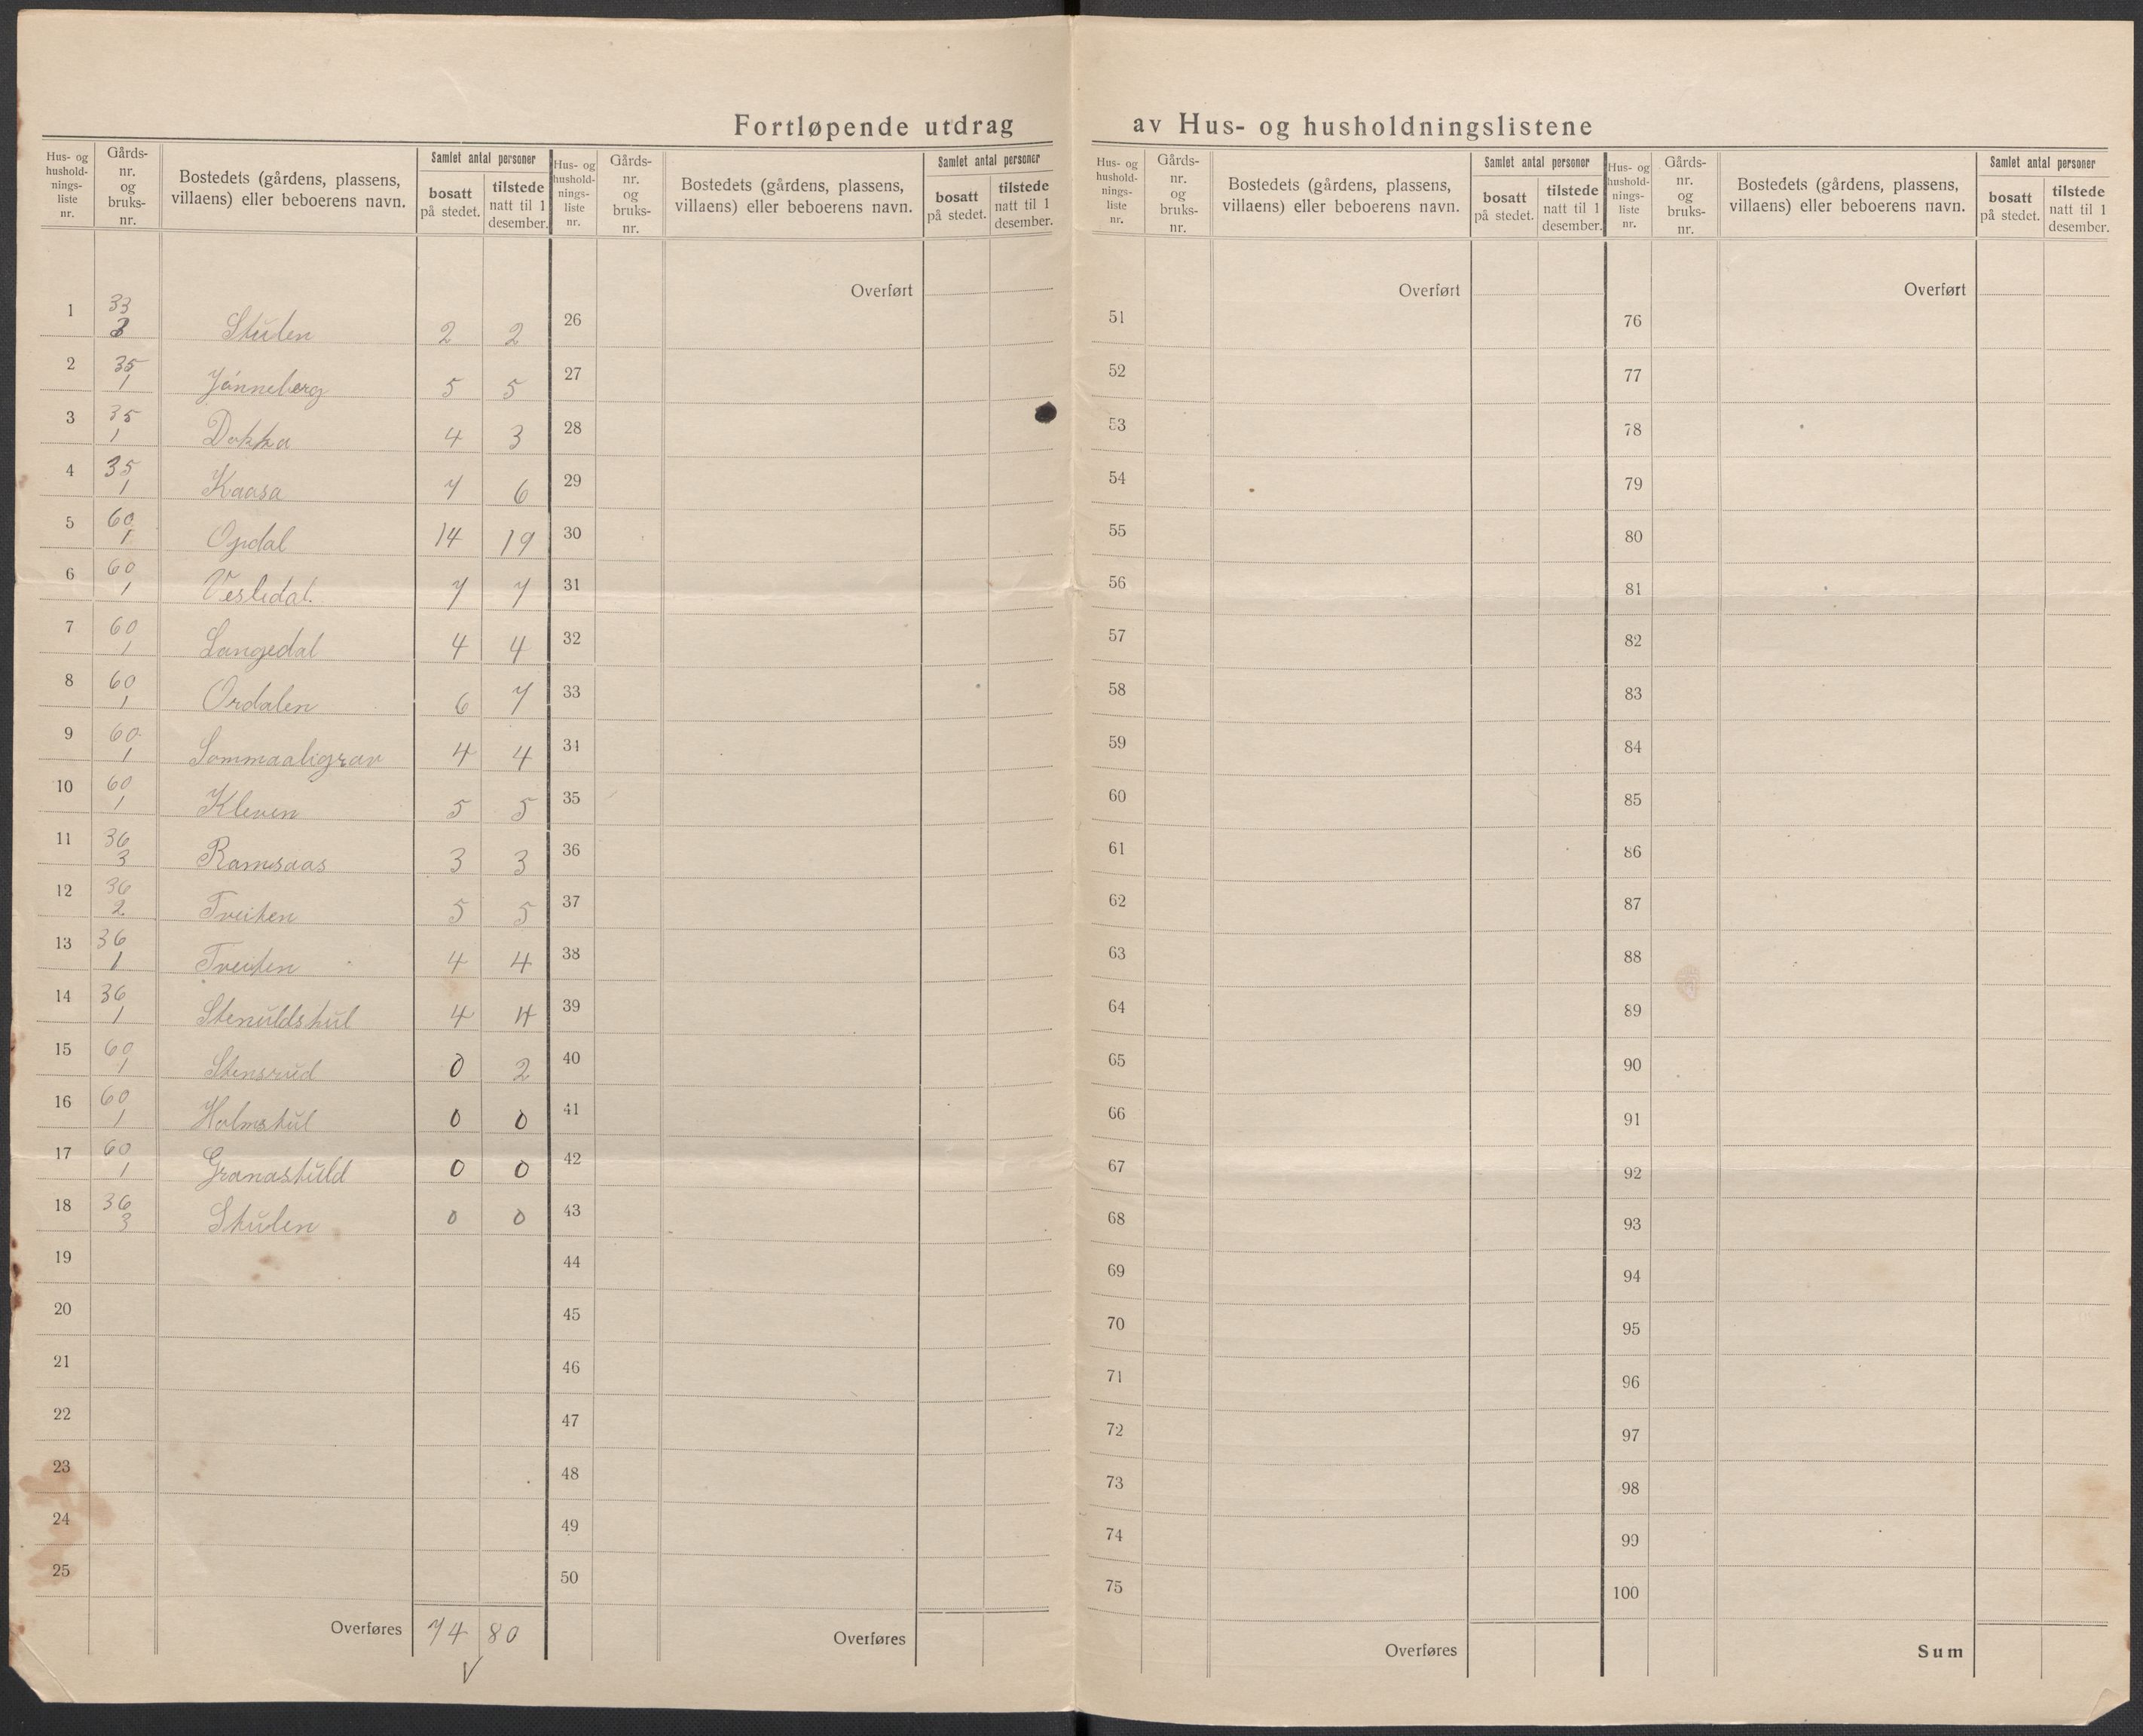 Fortløpende utdrag av Hus- og husholdningslistene
Hus- og husholdnings-liste nr. | Gårds-nr. og bruks-nr. | Bostedets (gårdens, plassens, villaens) eller beboerens navn. | Samlet antal personer | bosatt på stedet. | tilstede natt til 1 desember.
1 33 3 Stulen 2 2
2 35 1 Jønneberg 5 5
3 35 1 Dokka 4 3
4 35 1 Kaasa 7 6
5 60 1 Opdal 14 19
6 60 1 Veslidal. 7 7
7 60 1 Langedal 4 4
8 60 1 Ordalen 6 7
9 60 1 Sommaaligrav 4 4
10 60 1 Kleven 5 5
11 36 3 Ramsaas 3 3
12 36 2 Tveiten 5 5
13 36 1 Tveiten 4 4
14 36 1 Stenuldstul 4 4
15 60 1 Stensrud 0 2
16 60 1 Holmstul 0 0
17 60 1 Granastuld 0 0
18 36 3 Stulen 0 0
19
20
21
22
23
24
25
Overføres 74 80
Hus- og husholdnings-liste nr. | Gårds-nr. og bruks-nr. | Bostedets (gårdens, plassens, villaens) eller beboerens navn. | Samlet antal personer | bosatt på stedet. | tilstede natt til 1 desember.
Overført
26
27
28
29
30
31
32
33
34
35
36
37
38
39
40
41
42
43
44
45
46
47
48
49
50
Overføres
Hus- og husholdnings-liste nr. | Gårds-nr. og bruks-nr. | Bostedets (gårdens, plassens, villaens) eller beboerens navn. | Samlet antal personer | bosatt på stedet. | tilstede natt til 1 desember.
Overført
51
52
53
54
55
56
57
58
59
60
61
62
63
64
65
66
67
68
69
70
71
72
73
74
75
Overføres
Hus- og husholdnings-liste nr. | Gårds-nr. og bruks-nr. | Bostedets (gårdens, plassens, villaens) eller beboerens navn. | Samlet antal personer | bosatt på stedet. | tilstede natt til 1 desember.
Overført
76
77
78
79
80
81
82
83
84
85
86
87
88
89
90
91
92
93
94
95
96
97
98
99
100
Sum